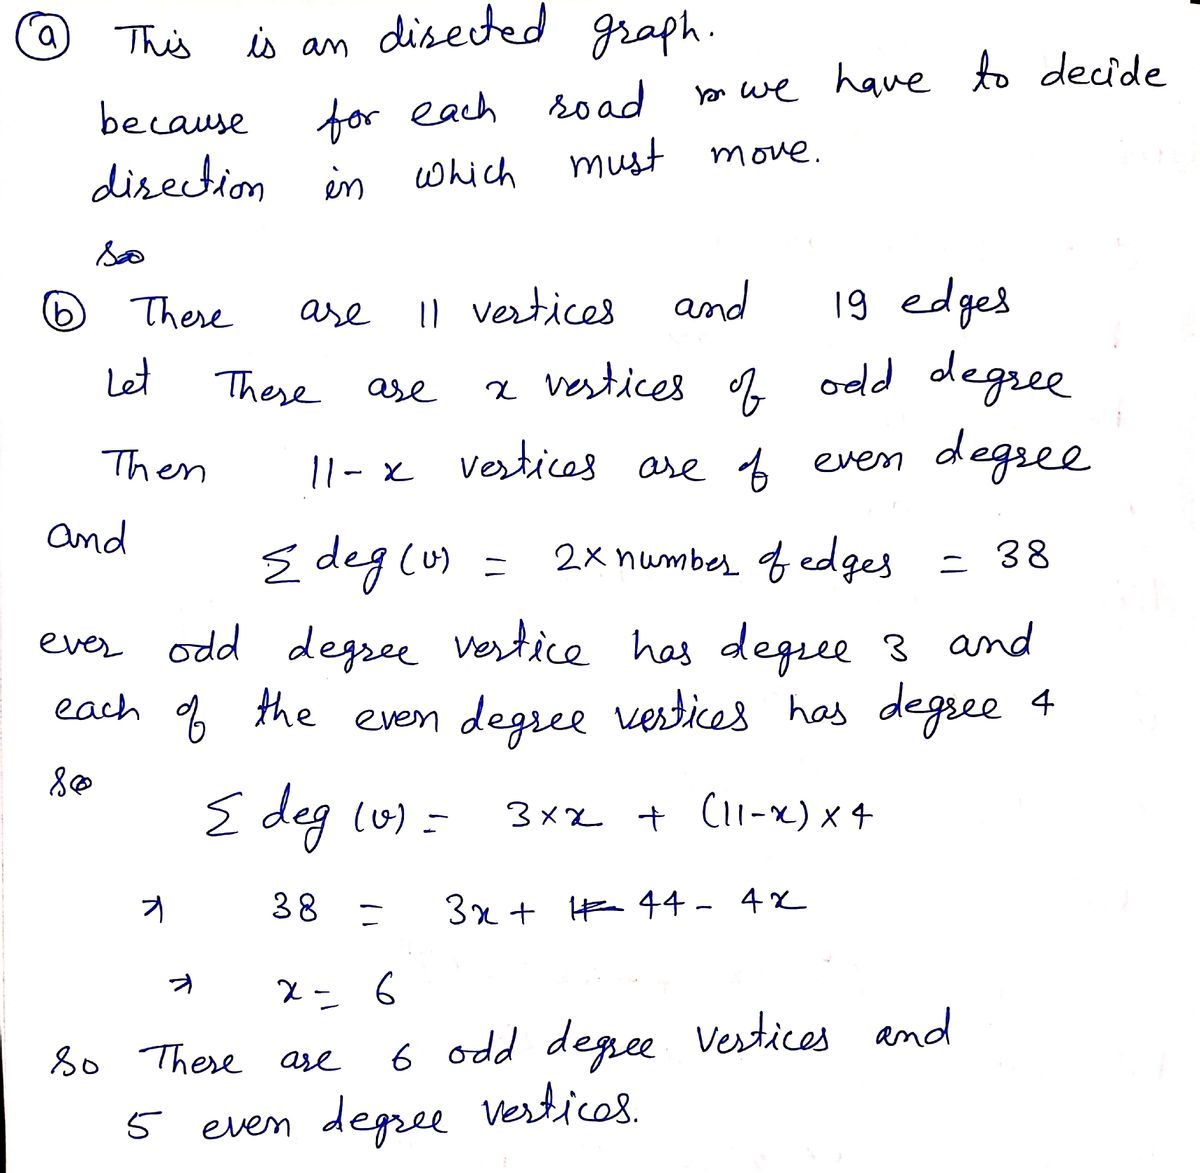 (a) This is an directed graph.
because for each road we have to decide
direction in which must move.
so
(b) There are 11 vertices and 19 edges
Let There are x vertices of odd degree
Then 11-x vertices are of even degree
and Σ deg(v) = 2× number of edges = 38
ever odd degree vertice has degree 3 and
each of the even degree vertices has degree 4
so
Σ deg (v) = 3×x + (11-x) × 4
⇒ 38 = 3x + 44 - 4x
⇒ x = 6
so There are 6 odd degree vertices and
5 even degree vertices.